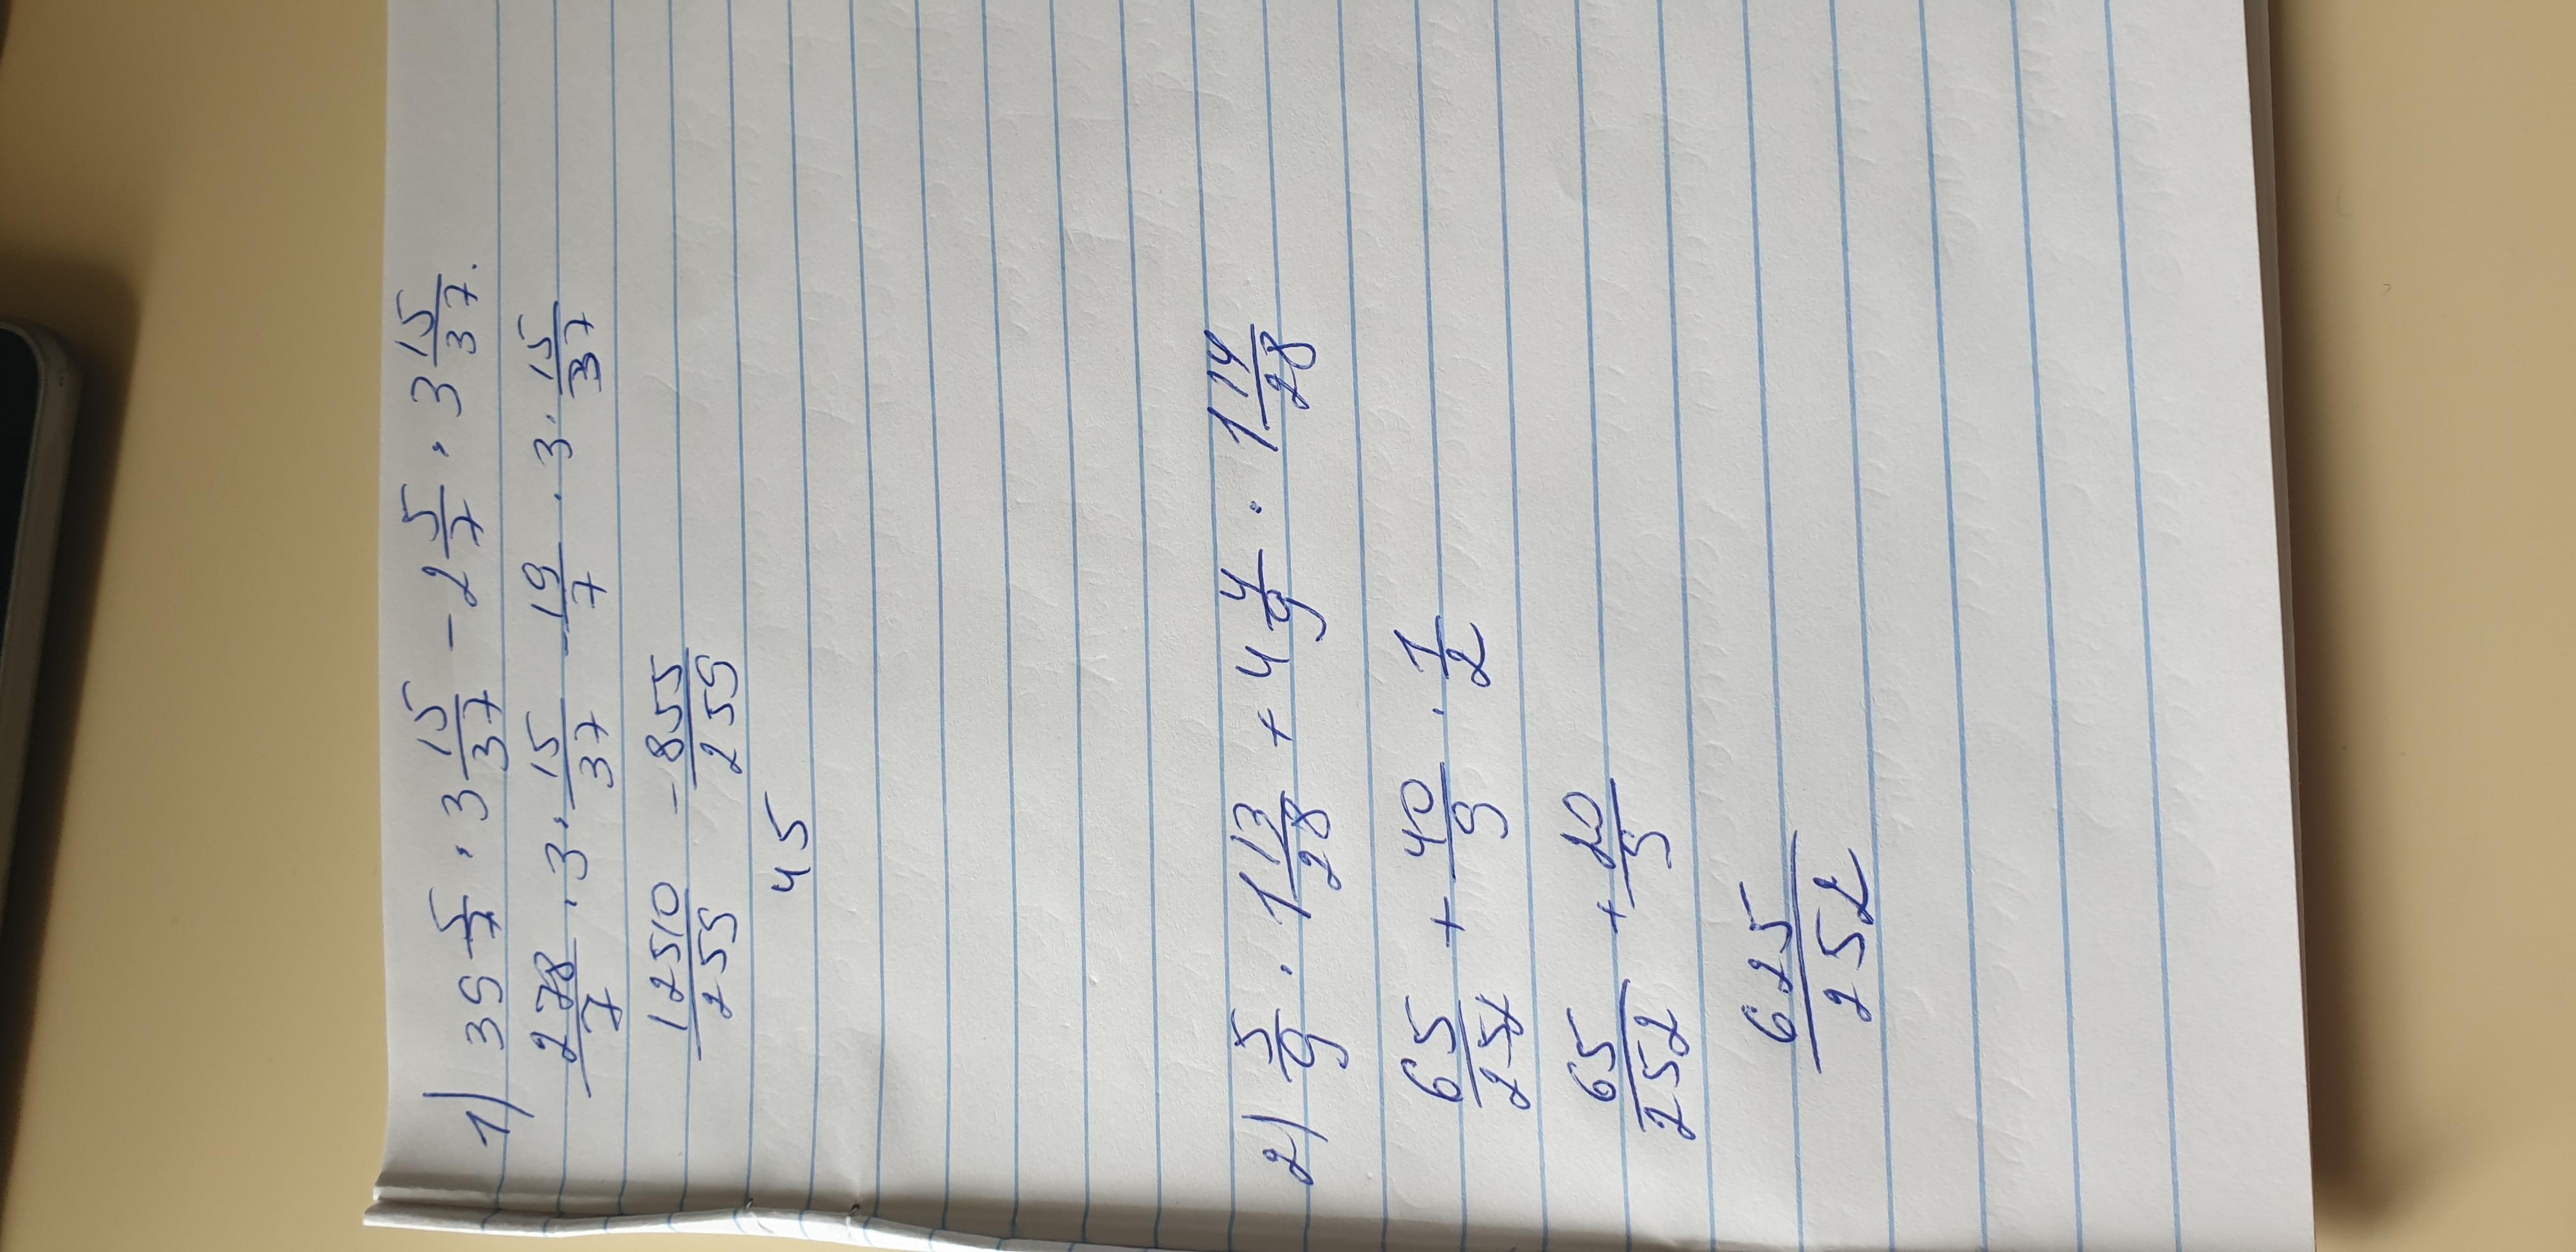 1) 39 5/7 · 3 15/37 - 2 5/7 · 3 15/37.
278/7 · 3 · 15/37 - 19/7 · 3 · 15/37
12510/259 - 855/259
45
2) 5/9 · 1 13/28 + 4 4/9 · 1 14/28
65/252 + 40/9 · 1/2
65/252 + 20/9
625/252